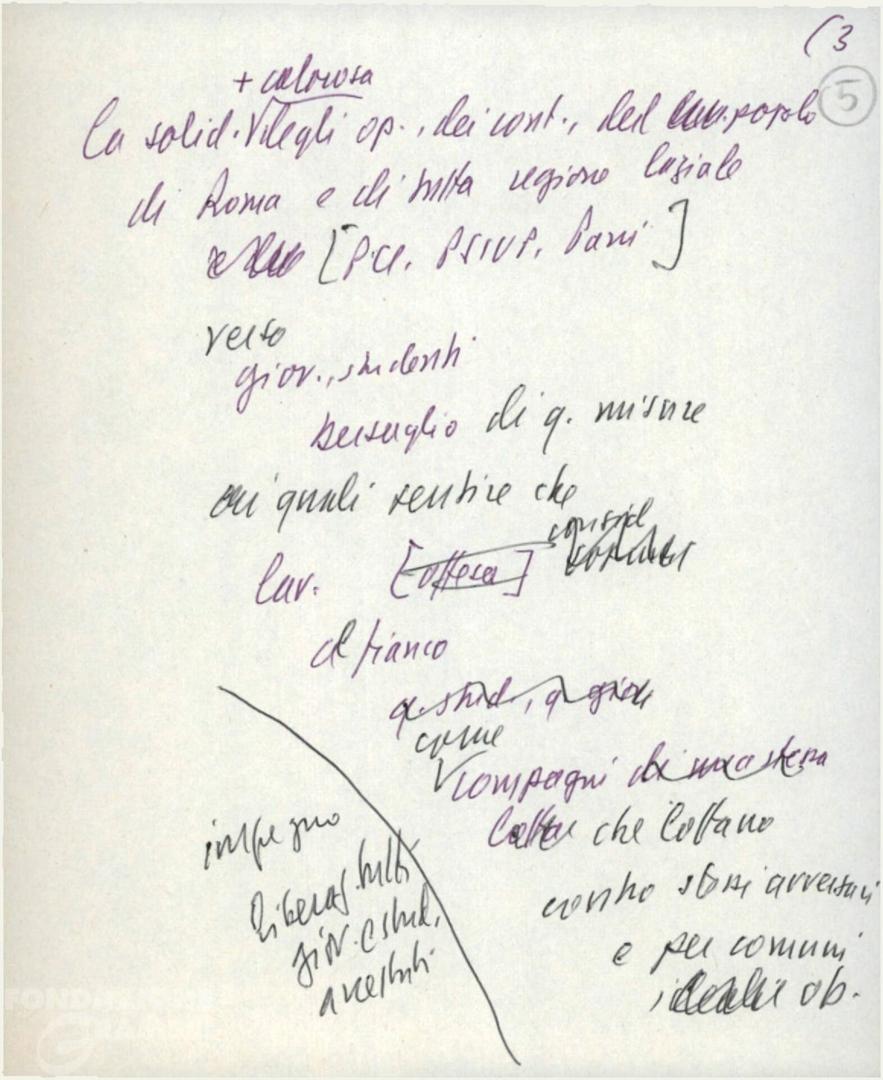 (3
5
+ calorosa
la solid. degli op., dei cont., del popolo
di Roma e di tutta regione laziale
[PCI, PSIUP, Parri]
verso
giov., studenti
bersaglio di q. misure
ai quali sentire che
consid
lav. [attesa]
al fianco
q. stud., q. giov
come
compagni di una stessa
lotta che lottano
contro stessi avversari
e per comuni
ideali ob.
impegno
liberaz. tutti
giov. e stud.
arrestati
FONDAZIONE